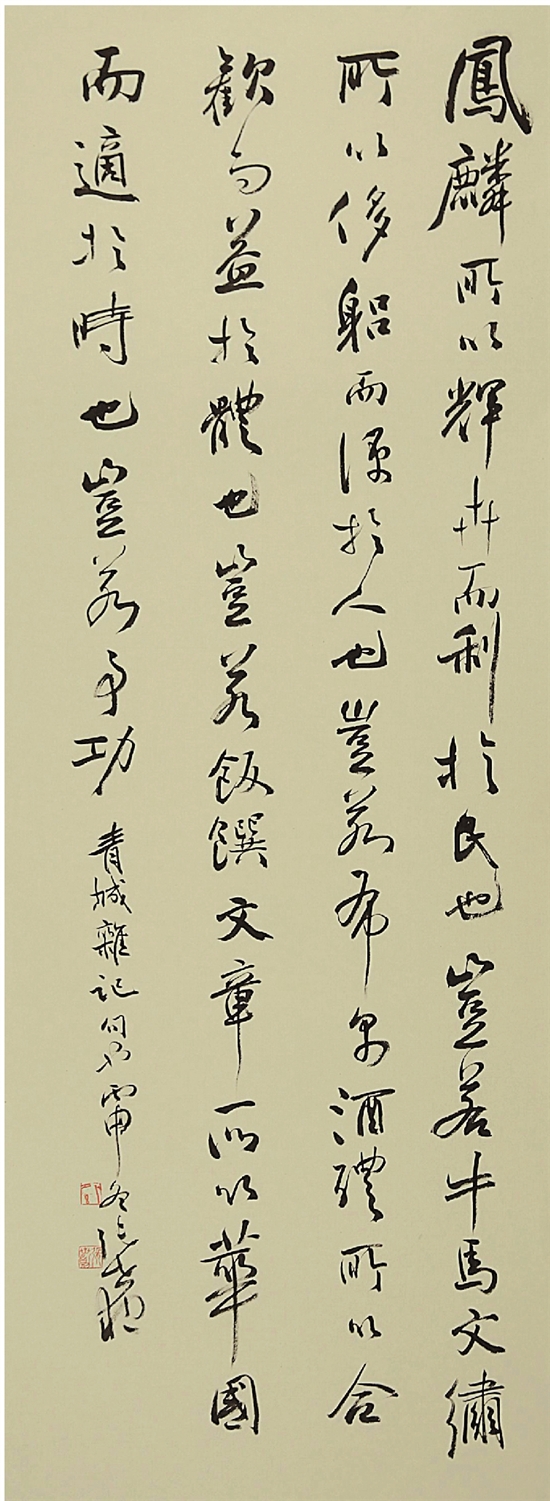 鳳麟所以輝世而利於民也豈若牛馬文繡
所以侈躬而便於人也豈若布帛酒醴所以合
歡而益於體也豈若飯饌文章所以華國
而適於時也豈若事功
青城雜記句丙申冬